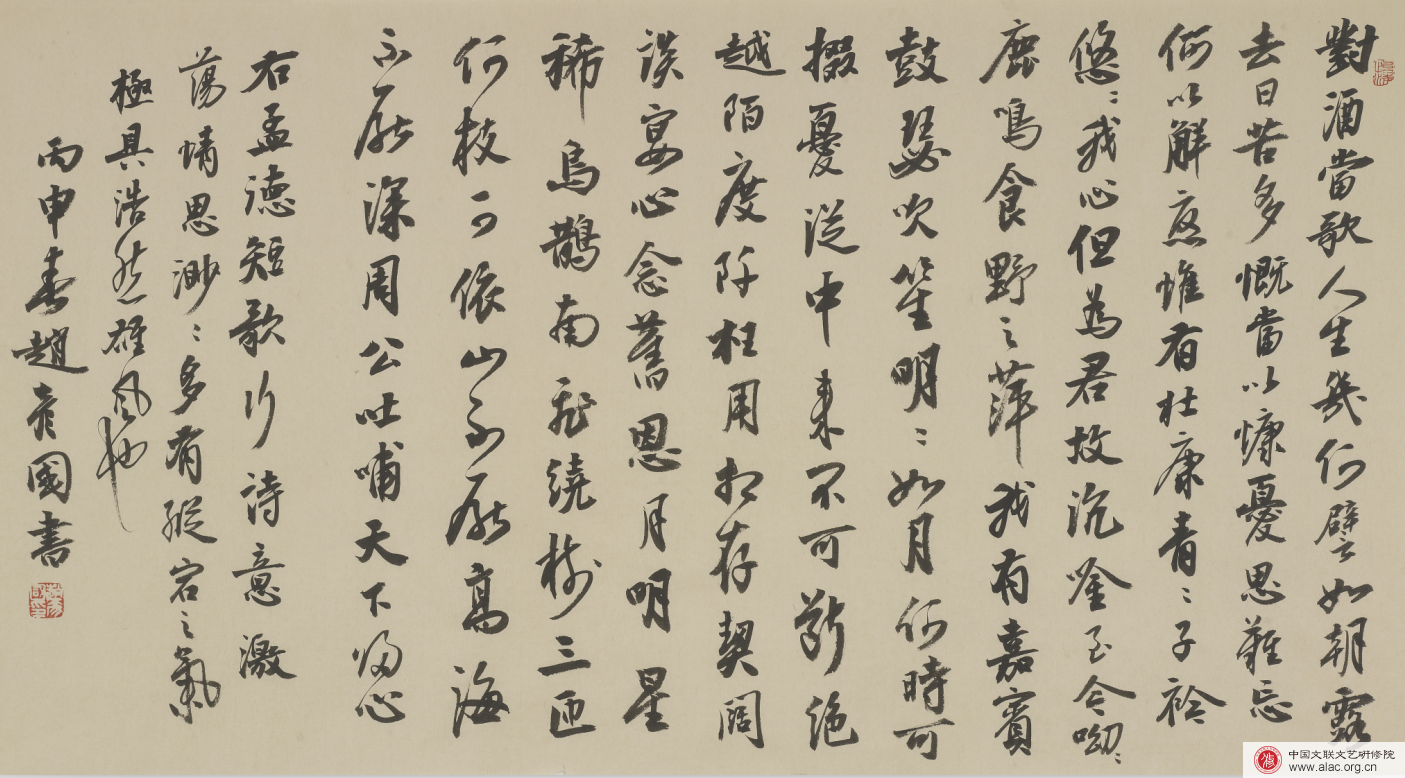 對酒當歌人生幾何譬如朝露
去日苦多慨當以慷憂思難忘
何以解憂惟有杜康青〻子衿
悠〻我心但為君故沉唫至今呦〻
鹿鳴食野之萍我有嘉賓
鼓瑟吹笙明〻如月何時可
掇憂從中來不可斷絕
越陌度阡枉用相存契闊
談宴心念舊恩月明星
稀烏鵲南飛繞樹三匝
何枝可依山不厭高海
不厭深周公吐哺天下歸心
右孟德短歌行詩意激
蕩情思渺〻多有縱宕之氣
極具浩然雄風也
丙申春趙彥國書
中国文联文艺研修院
www.alac.org.cn